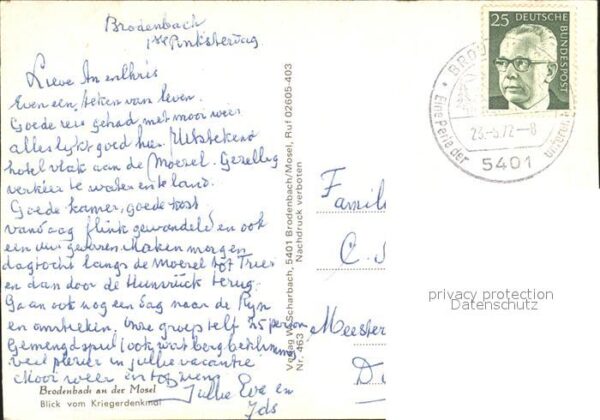 Brodenbach
1ste Pinksterdag
Lieve An en Chris
Even een teken van leven.
Goede reis gehad, met mooi weer
alles lijkt goed hier. Uitstekend
hotel vlak aan de Moezel. Gezellig
verkeer te water en te land.
Goede kamer, goede kost
vandaag flink gewandeld en ook
een uur gevaren. Maken morgen
dagtocht langs de Moezel tot Trier
en dan door de Hunsrück terug.
Gaan ook nog een dag naar de Rijn
en omstreken. Onze groep telt 25 personen
Gemengd spul (ook wat bergbeklimmers
veel plezier in jullie vacantie
Mooi weer en tot ziens
Jullie Eva en
Ids
Brodenbach an der Mosel
Blick vom Kriegerdenkmal
Verlag W. Scharbach, 5401 Brodenbach/Mosel, Ruf 02605-403
Nachdruck verboten
Nr. 463
25 DEUTSCHE
BUNDESPOST
BROD
Eine Perle der
23.-5.72-8
5401
Famil
C. S
Meester
D
privacy protection
Datenschutz